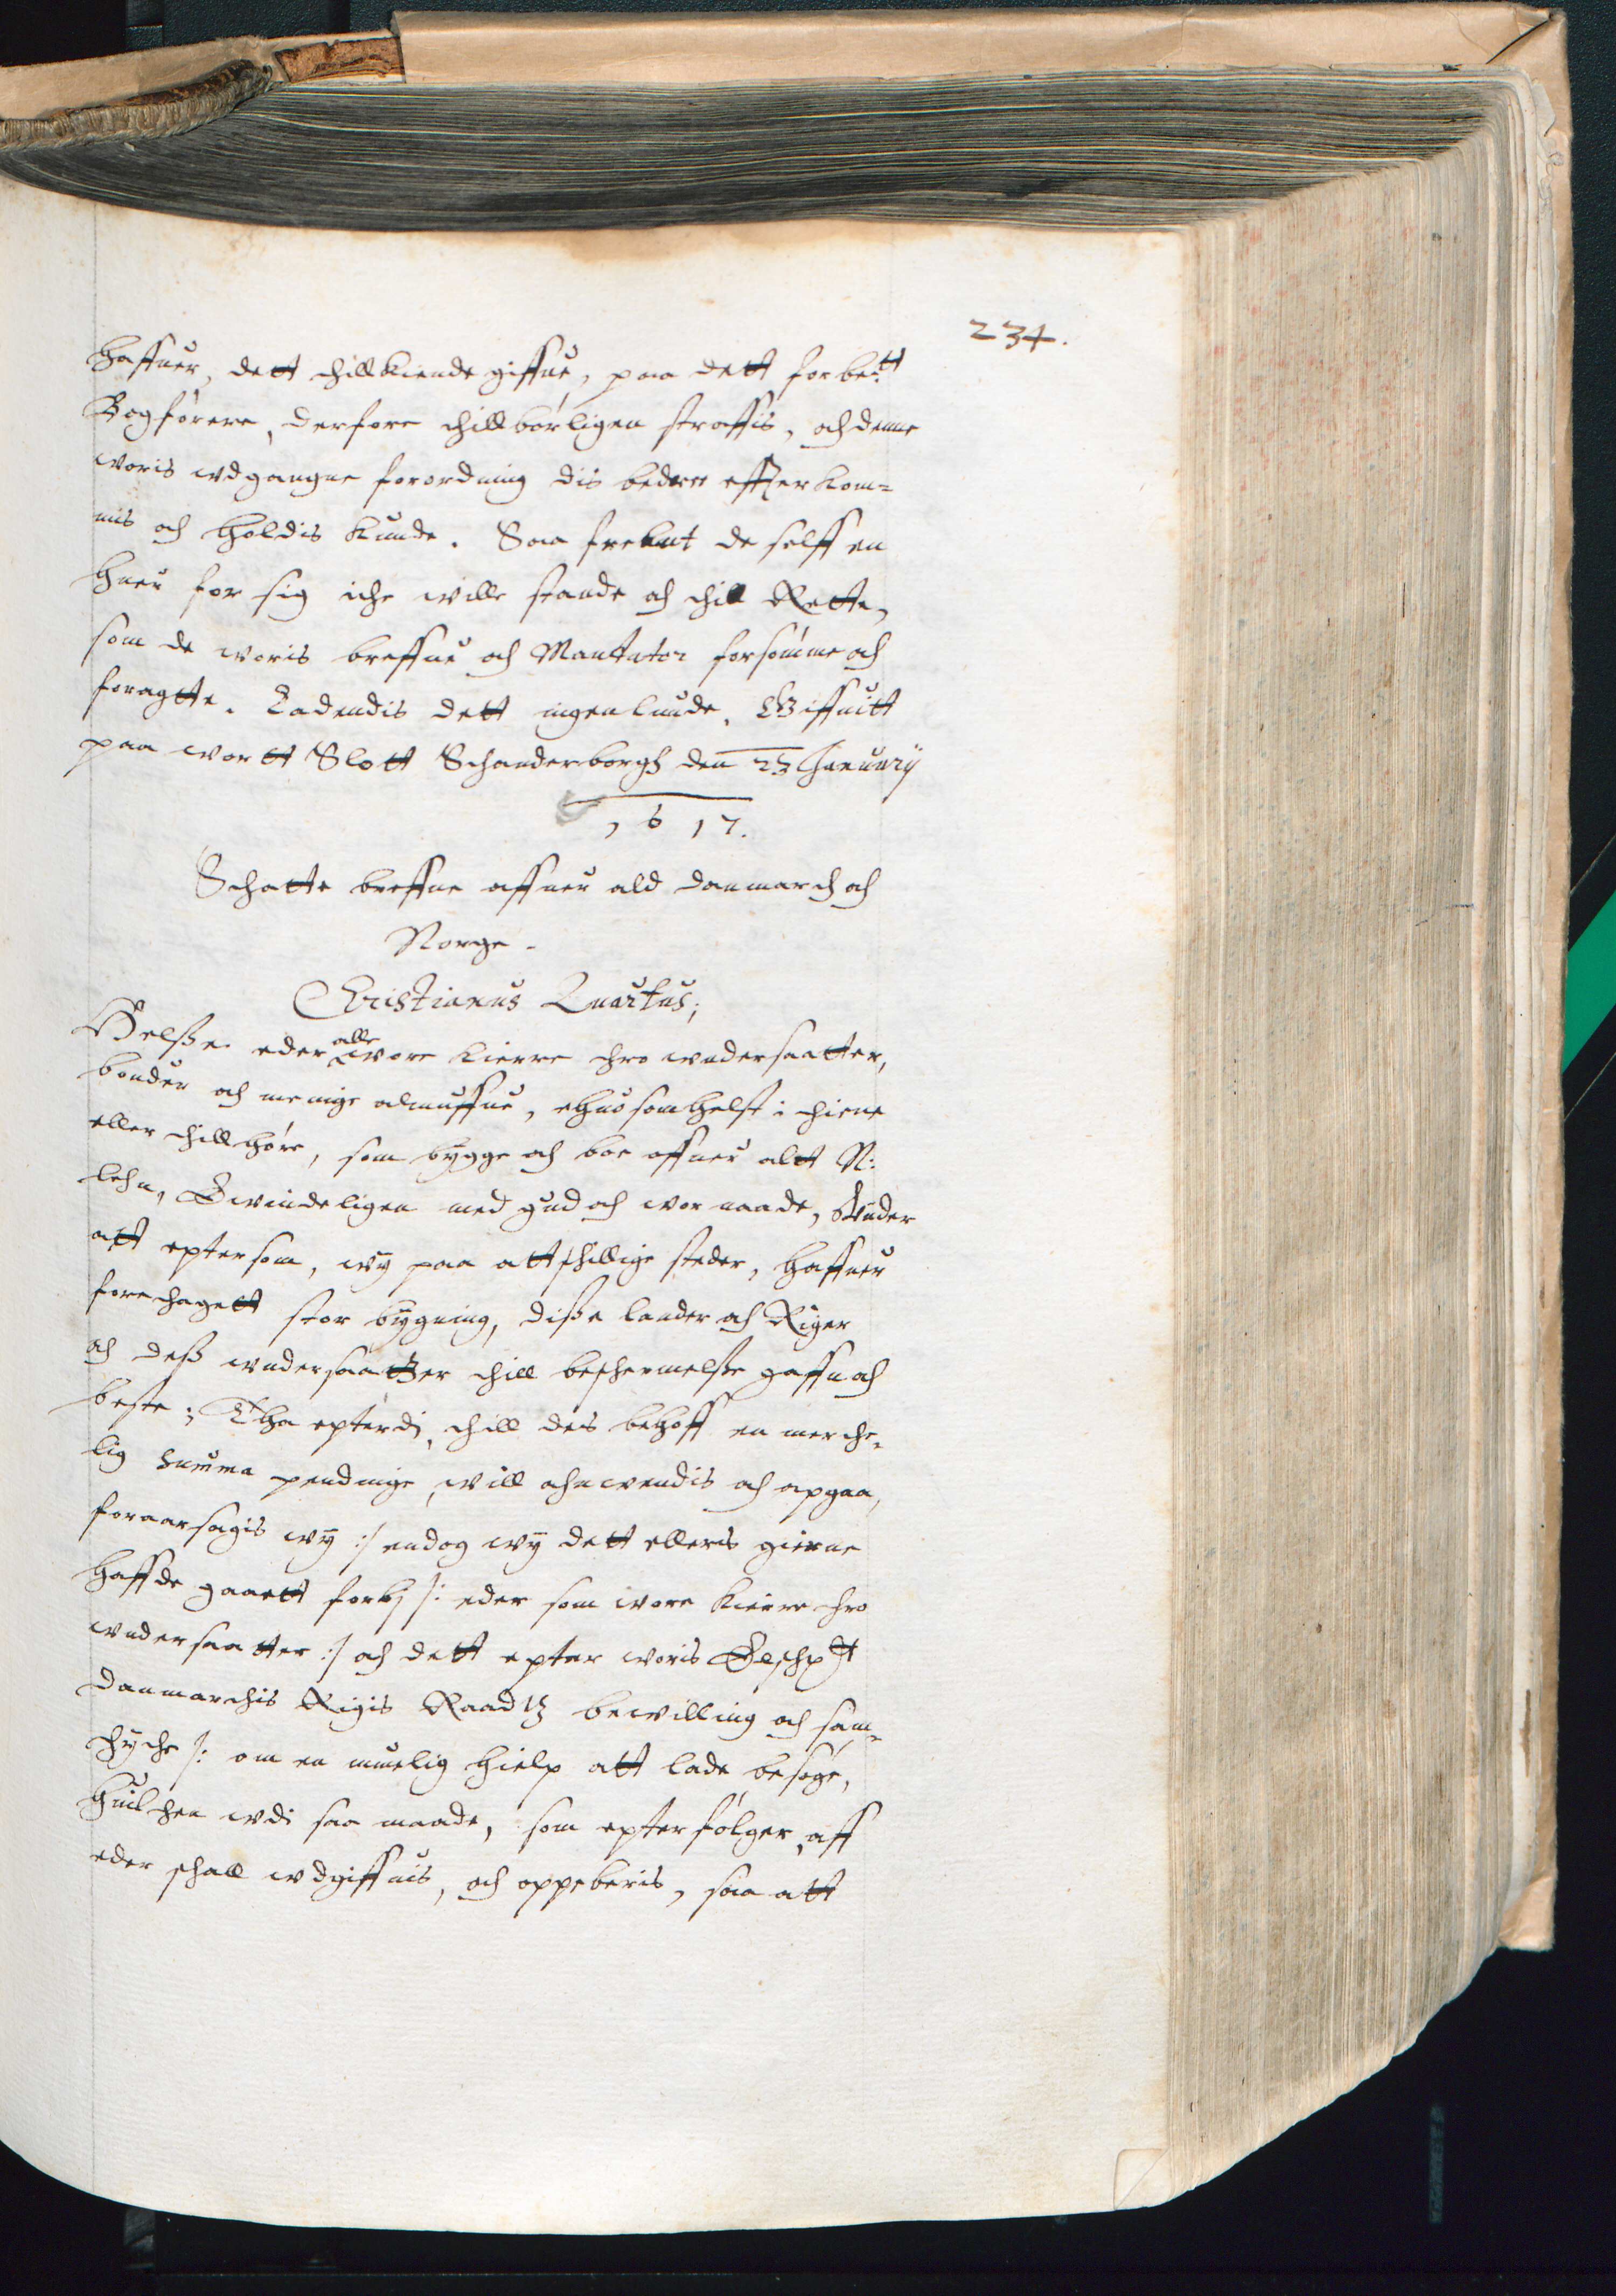 234.
haffuer, dett thillkiende giffue, paa dett forbe:tt
Bogførere, derfore thillbørligen straffis, och denne
woris wdgangne forordning dis bedere effterkom=
mis och holdis kunde. Saa frembt de selff en
huer for sig iche wille stande och thill Rette,
som de woris breffue och Mantater forsømme och
foragtte. Ladendis dett ingenlunde, Giffuitt
paa wortt Slott Schanderborgh den 23 January
1617.
Schatte breffue offuer ald danmarch och
Norge.
Christianus Quartus;
Helsse eder alle wore kierre thro wndersaatter,
bønder och menige almuffue, ehuo somhelst i thiene
eller thillhøre, som bygge och boe offuer altt N:
lehn, Ewindeligen med gud och wor naade, Wider
att epter som, wy paa attschillige steder, haffuer
forethagett stor bygning, disse lander och Riger
och dess wndersaatter thill beschermelsse gaffn och
beste; Tha epterdj, thill des behoff en merche=
lig summa pendinge, will ahnwendis och opgaa,
foraarsagis wy :/ endog wy dett ellers gierne
haffde gaaett forbj /: eder som wore kierre thro
wndersaatter :/ och dett epter woris Elsch:tt
Danmarchis Rigis Raadtz bewilling och sam=
thyche /: om en muelig hielp att lade besøge,
huilchen wdi saa maade, som epterfølger, aff
eder schall wdgiffuis, och oppeberis, saa att